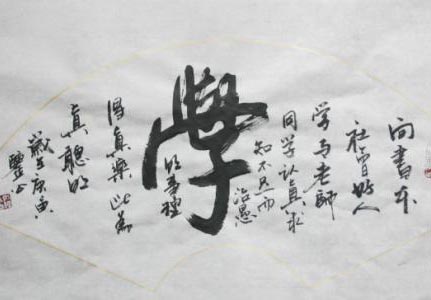 學
向書本
社會好人
学与老師
同学认真求
知不足而
治愚
明事理
得真樂此為
真聰明
歲在庚寅